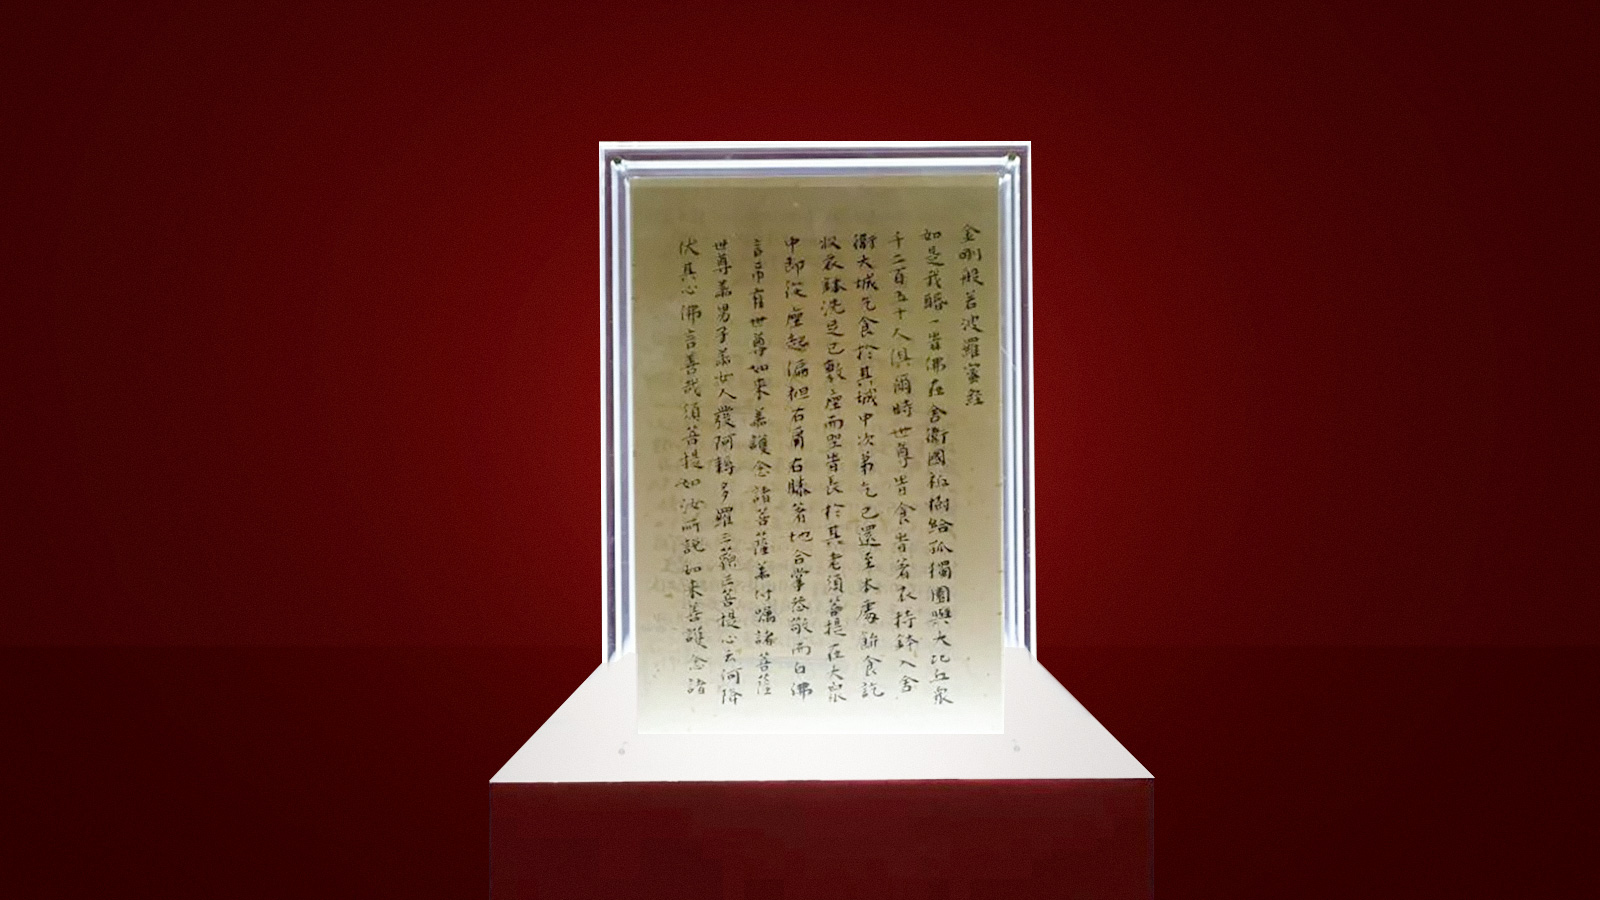 金剛般若波羅蜜經
如是我聞一旹佛在舍衛國祇樹給孤獨園與大比丘衆
千二百五十人俱爾時世尊旹食旹著衣持鉢入舍
衛大城乞食於其城中次第乞已還至本處飯食訖
收衣鉢洗足已敷座而坐旹長於其老須菩提在大衆
中即從座起偏袒右肩右膝著地合掌恭敬而白佛
言希有世尊如来善護念諸菩薩善付囑諸菩薩
世尊善男子善女人發阿耨多羅三藐三菩提心云何降
伏其心佛言善哉須菩提如汝所說如来善護念諸